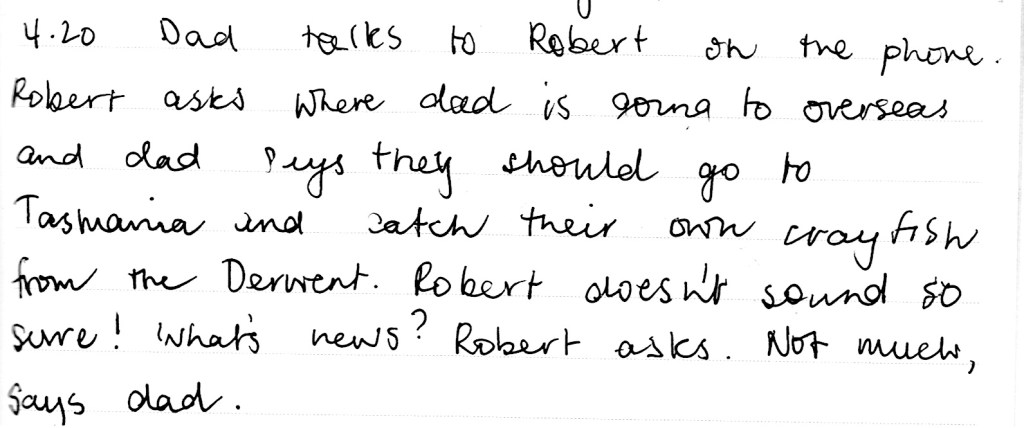 4.20 Dad talks to Robert on the phone.
Robert asks where dad is going to overseas
and dad says they should go to
Tasmania and catch their own crayfish
from the Derwent. Robert doesn't sound so
sure! What's news? Robert asks. Not much,
says dad.